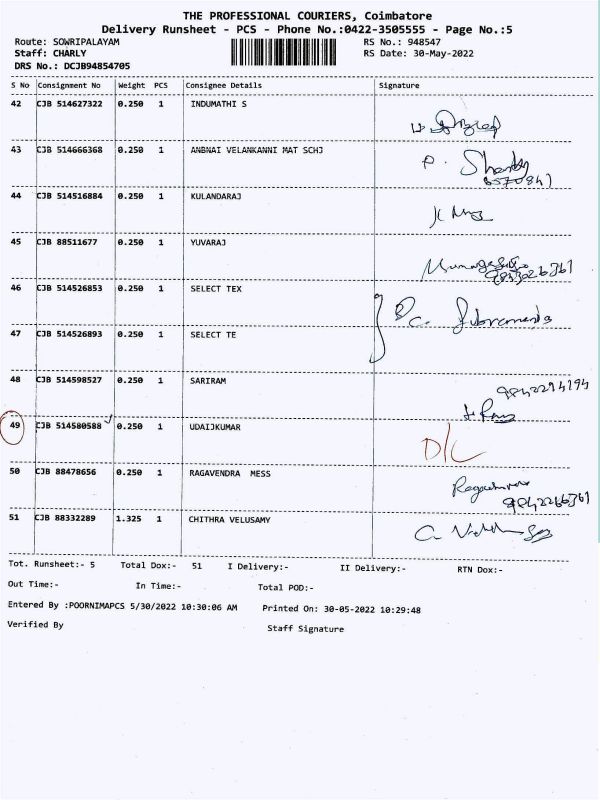 THE PROFESSIONAL COURIERS, Coimbatore
Delivery Runsheet - PCS - Phone No.:0422-3505555 - Page No.:5
Route: SOWRIPALAYAM RS No.: 948547
Staff: CHARLY RS Date: 30-May-2022
DRS No.: DCJB94854705
S No Consignment No Weight PCS Consignee Details Signature
42 CJB 514627322 0.250 1 INDUMATHI S
43 CJB 514666368 0.250 1 ANBNAI VELANKANNI MAT SCHJ
44 CJB 514516884 0.250 1 KULANDARAJ
45 CJB 88511677 0.250 1 YUVARAJ
46 CJB 514526853 0.250 1 SELECT TEX
47 CJB 514526893 0.250 1 SELECT TE
48 CJB 514598527 0.250 1 SARIRAM 9842294194
49 CJB 514580588 0.250 1 UDAIJKUMAR D/L
50 CJB 88478656 0.250 1 RAGAVENDRA MESS 9842266361
51 CJB 88332289 1.325 1 CHITHRA VELUSAMY
Tot. Runsheet:- 5 Total Dox:- 51 I Delivery:- II Delivery:- RTN Dox:-
Out Time:- In Time:- Total POD:-
Entered By :POORNIMAPCS 5/30/2022 10:30:06 AM Printed On: 30-05-2022 10:29:48
Verified By Staff Signature